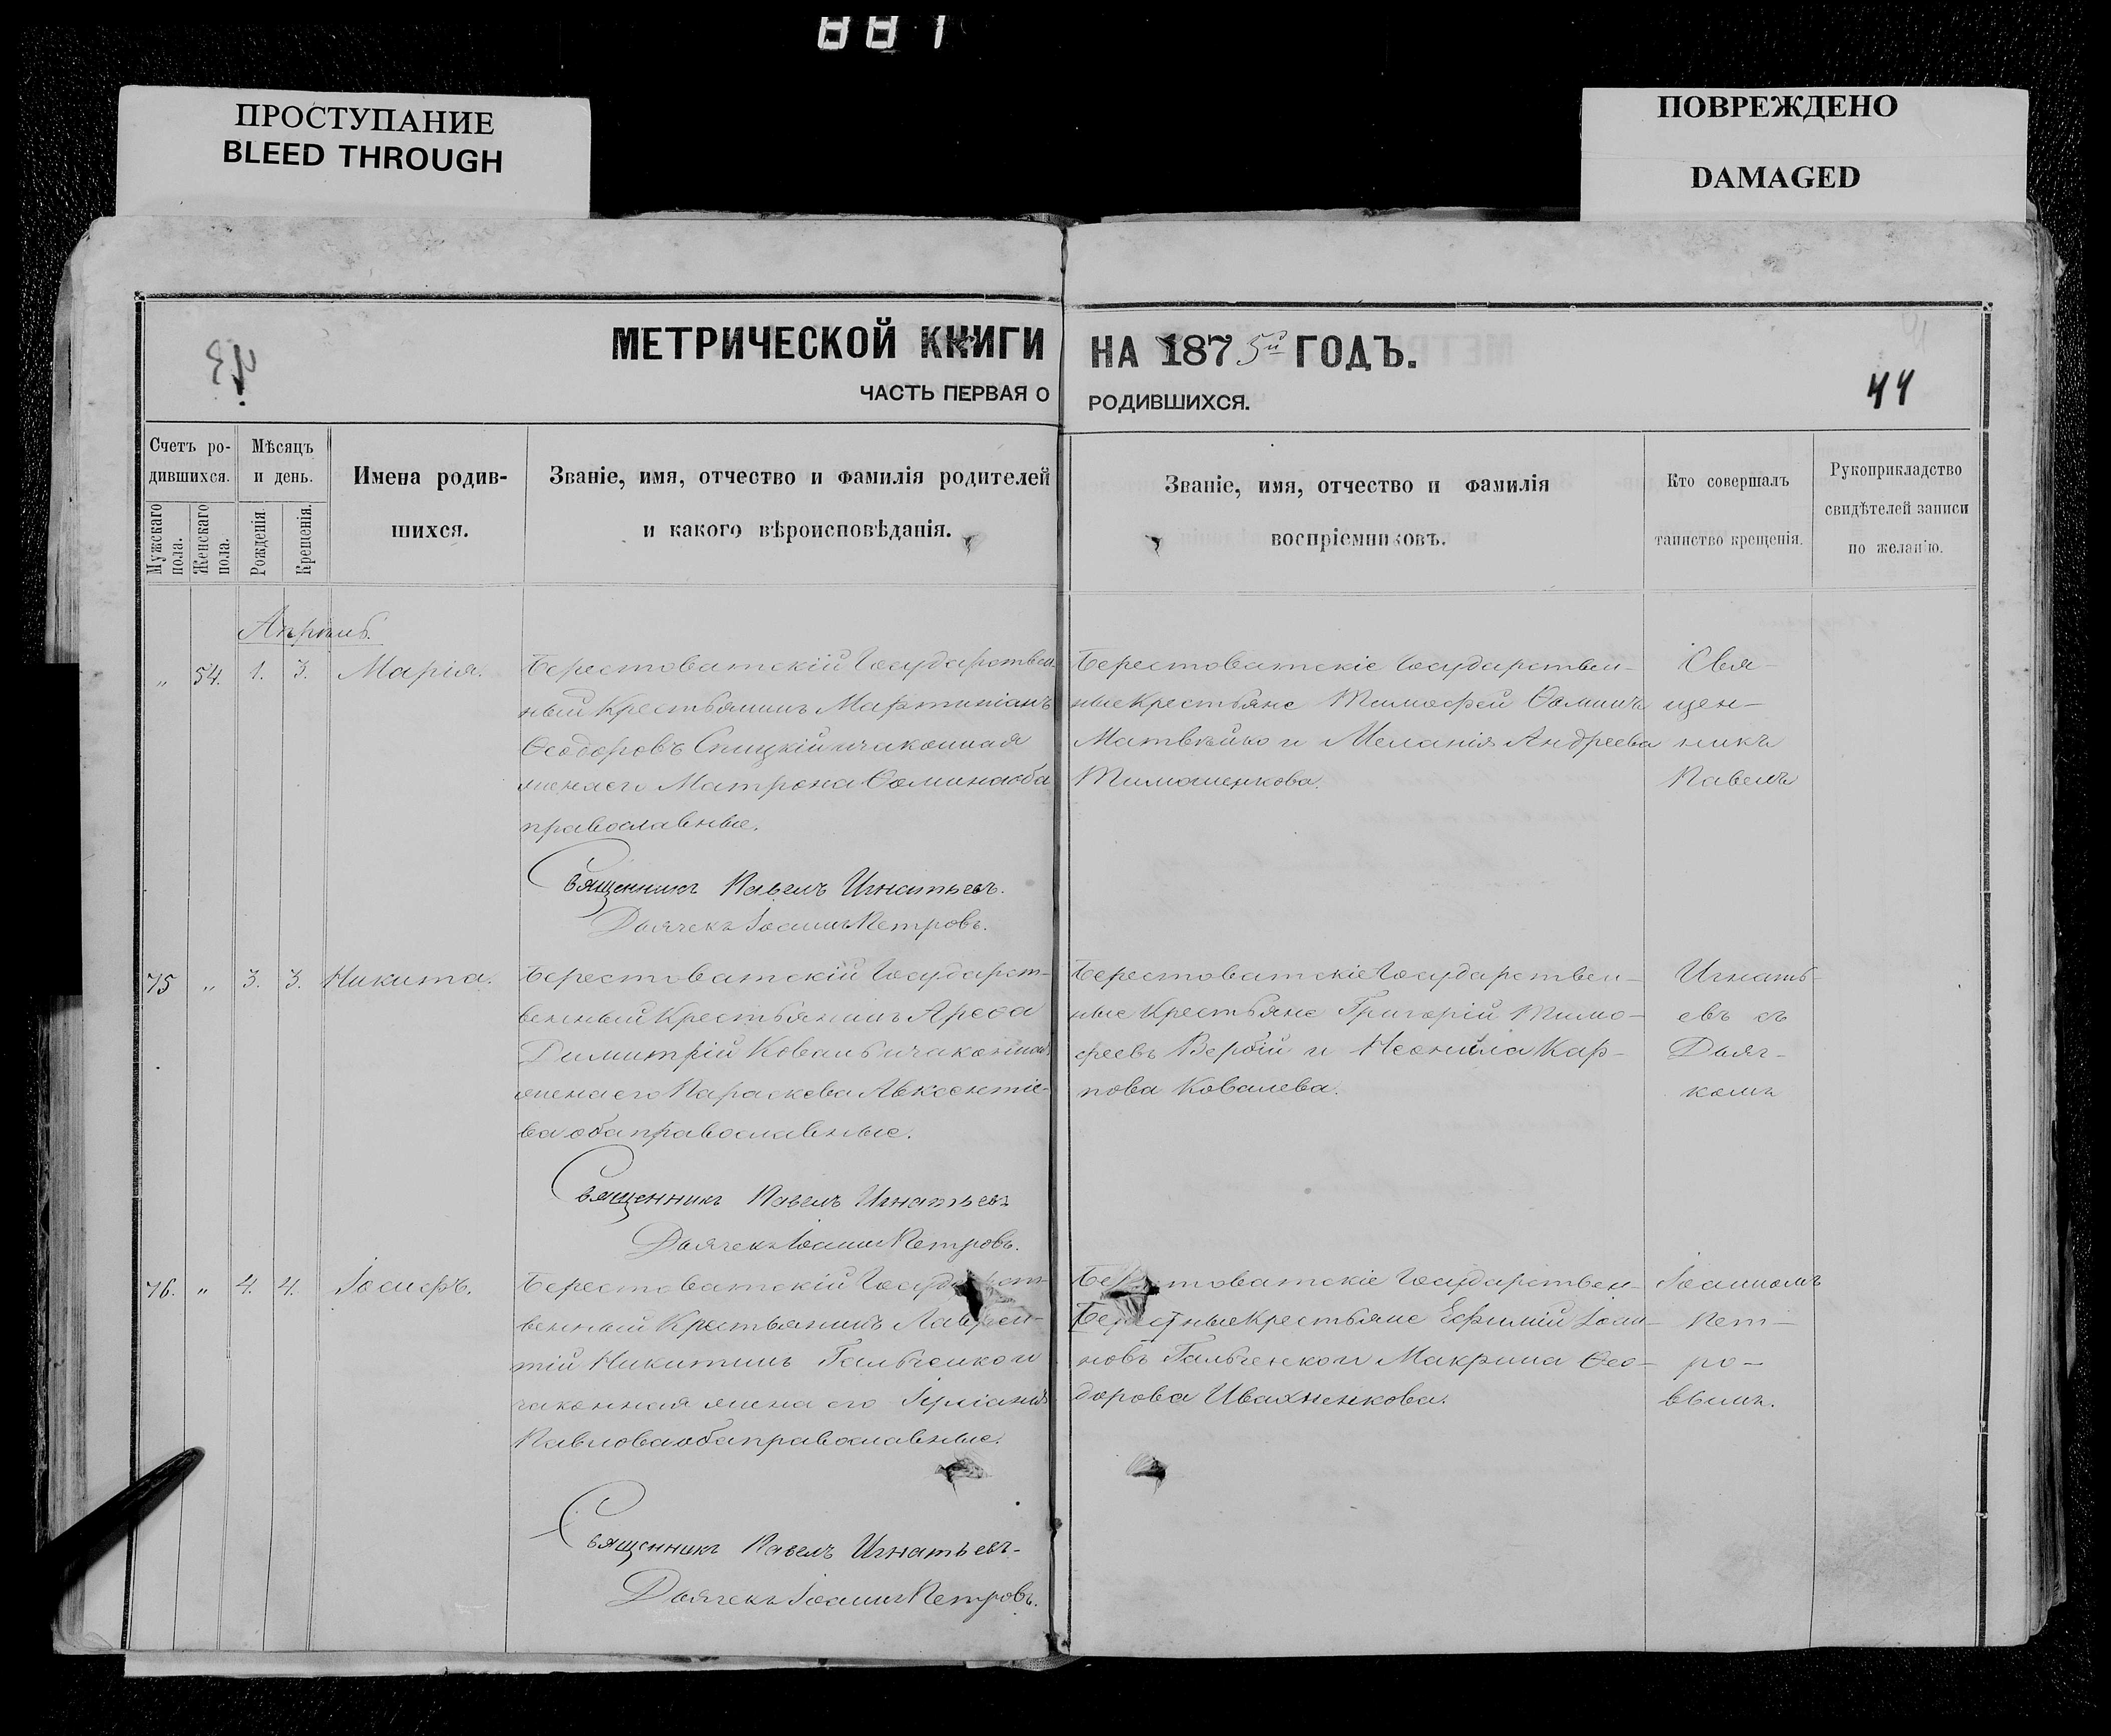 881
ПРОСТУПАНИЕ
BLEED THROUGH
ПОВРЕЖДЕНО
DAMAGED
МЕТРИЧЕСКОЙ КНИГИ
НА 1875й ГОДЪ.
ЧАСТЬ ПЕРВАЯ О
РОДИВШИХСЯ.
44
Счетъ ро-
дившихся.
Мужскаго
пола.
Женскаго
пола.
Мѣсяцъ
и день.
Рожденія.
Крещенія.
Имена родив-
шихся.
Званіе, имя, отчество и фамилія родителей
и какого вѣроисповѣданія.
Званіе, имя, отчество и фамилія
воспріемниковъ.
Кто совершалъ
таинство крещенія.
Рукоприкладство
свидѣтелей записи
по желанію.
Апрѣль.
„ 54. 1. 3. Марія.
Берестоватскій Государствен
ный Крестьянинъ Мартиніанъ
Ѳеодоровъ Спицкій и законная
жена его Матрона Ѳомина оба
православные.
Священникъ Павелъ Игнатьевъ.
Дьячекъ Іоаннъ Петровъ.
Берестоватскіе Государствен-
ные Крестьяне Тимофей Ѳоминъ
Матвѣйко и Меланія Андреева
Тимошенкова.
Свя-
щен-
никъ
Павелъ
75 „ 3. 3. Никита.
Берестоватскій Государст-
венный Крестьянинъ Арефа
Димитрій Коваль и законная
жена его Параскева Авксентіе-
ва оба православные.
Священникъ Павелъ Игнатьевъ
Дьячекъ Іоаннъ Петровъ.
Берестоватскіе Государствен-
ные Крестьяне Григорій Тимо-
феевъ Вербій и Неонила Кар-
пова Ковалева.
Игнать-
евъ съ
Дьяч-
комъ
76. „ 4. 4. Іосифъ.
Берестоватскій Государст-
венный Крестьянинъ Лаврен-
тій Никитинъ Гальченко и
законная жена его Іуліанія
Павлова оба православные.
Священникъ Павелъ Игнатьевъ-
Дьячекъ Іоаннъ Петровъ.
Берестоватскіе Государствен-
ные Крестьяне Ефимій Іоан-
новъ Гальченко и Макрина Ѳео-
дорова Ивахненкова.
Іоанномъ
Пет-
ро-
вымъ.